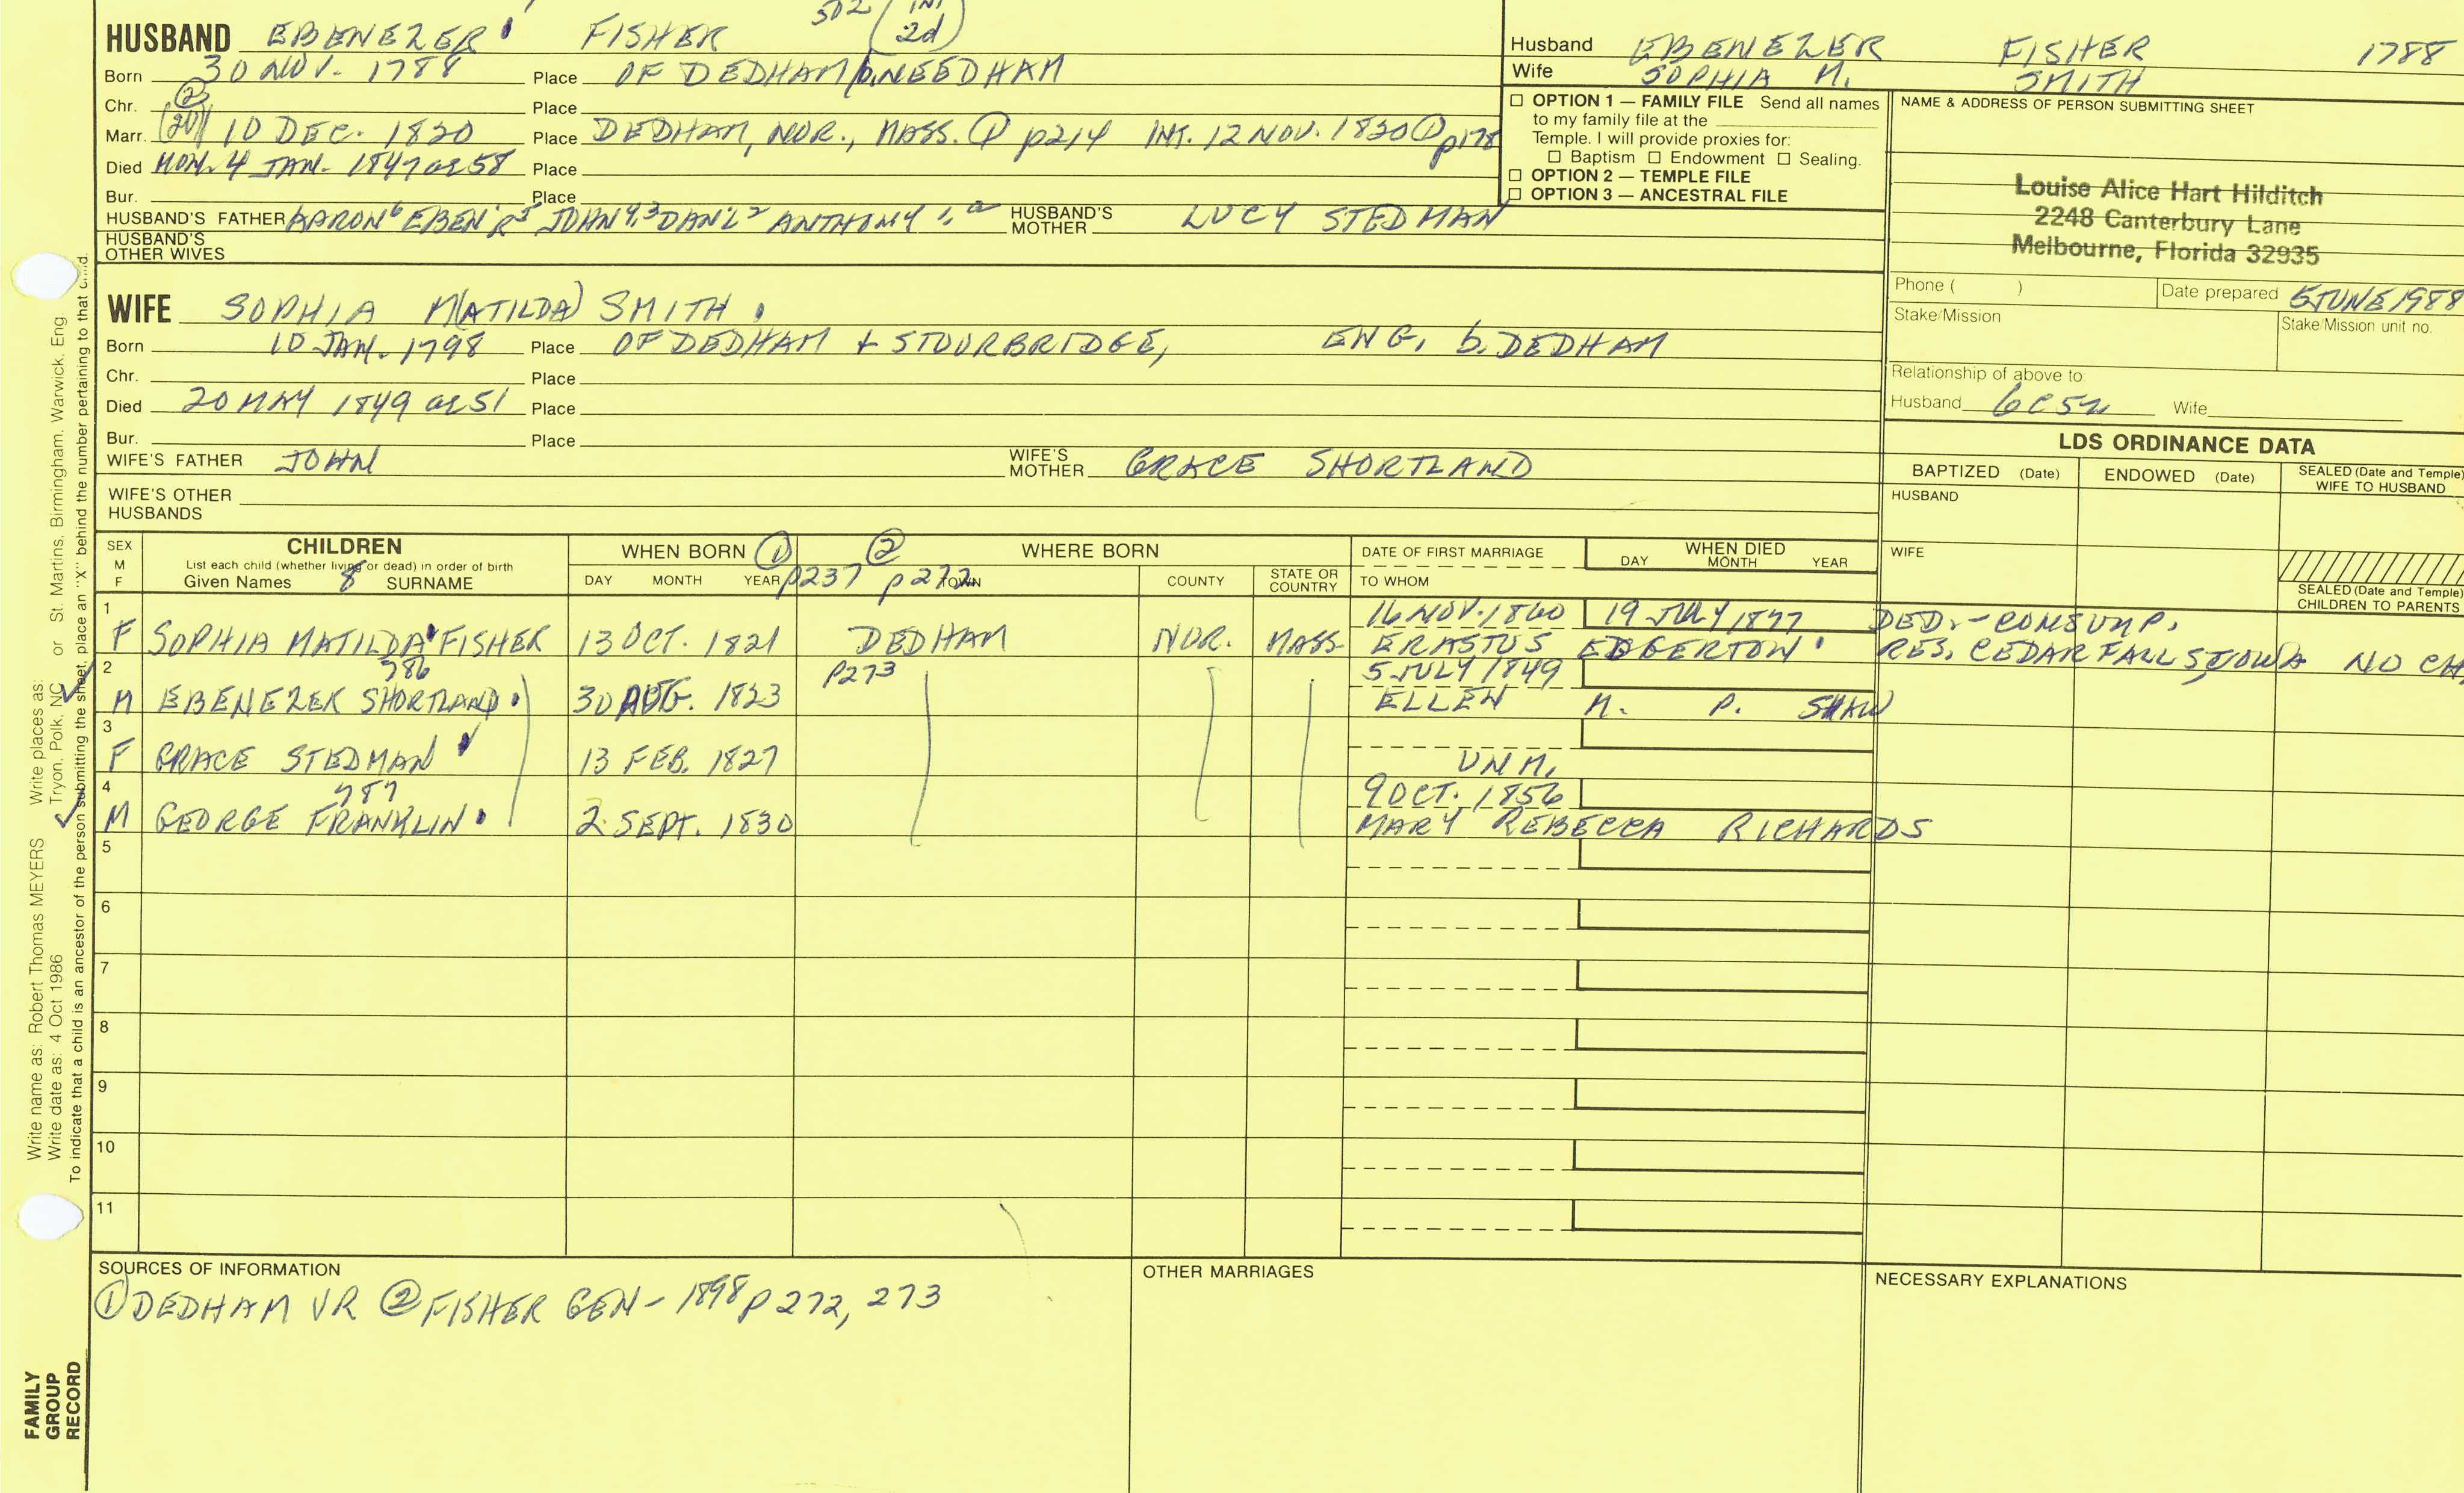 502 (INT
2d)
HUSBAND EBENEZER FISHER
Born 30 NOV. 1788 Place OF DEDHAM/b. NEEDHAM
Chr. ② Place
Marr. (20) 10 DEC. 1820 Place DEDHAM, NOR., MASS. ① p214 INT. 12 NOV. 1820 ① p178
Died MON. 4 JAN. 1847 ae 58 Place
Bur. Place
HUSBAND'S FATHER AARON⁶ EBEN'R⁵ JOHN⁴,³ DAN'L² ANTHONY ¹,ᵃ HUSBAND'S MOTHER LUCY STEDMAN
HUSBAND'S OTHER WIVES
Husband EBENEZER FISHER 1788
Wife SOPHIA M. SMITH
☐ OPTION 1 — FAMILY FILE Send all names
to my family file at the
Temple. I will provide proxies for:
☐ Baptism ☐ Endowment ☐ Sealing.
☐ OPTION 2 — TEMPLE FILE
☐ OPTION 3 — ANCESTRAL FILE
NAME & ADDRESS OF PERSON SUBMITTING SHEET
Louise Alice Hart Hilditch
2248 Canterbury Lane
Melbourne, Florida 32935
Phone ( ) Date prepared 5 JUNE 1988
Stake/Mission Stake/Mission unit no.
Relationship of above to
Husband 6C5R Wife
WIFE SOPHIA M(ATILDA) SMITH
Born 10 JAN. 1798 Place OF DEDHAM + STOURBRIDGE, ENG. b. DEDHAM
Chr. Place
Died 20 MAY 1849 ae 51 Place
Bur. Place
WIFE'S FATHER JOHN WIFE'S MOTHER GRACE SHORTLAND
WIFE'S OTHER
HUSBANDS
LDS ORDINANCE DATA
BAPTIZED (Date) ENDOWED (Date) SEALED (Date and Temple)
WIFE TO HUSBAND
HUSBAND
WIFE
SEALED (Date and Temple)
CHILDREN TO PARENTS
SEX
M
F
CHILDREN
List each child (whether living or dead) in order of birth
Given Names 8 SURNAME
WHEN BORN ①
DAY MONTH YEAR p237
② WHERE BORN
p272 TOWN COUNTY STATE OR COUNTRY
DATE OF FIRST MARRIAGE
TO WHOM
WHEN DIED
DAY MONTH YEAR
1 16 NOV. 1860 19 JULY 1877 DED. - CONSUMP.
F SOPHIA MATILDA FISHER 13 OCT. 1821 DEDHAM NOR. MASS. ERASTUS EDGERTON RES. CEDAR FALLS IOWA NO CH.
2 786 p273 5 JULY 1849
M EBENEZER SHORTLAND 30 AUG. 1823 ELLEN M. P. SHAW
3
F GRACE STEDMAN 13 FEB. 1827 UNM.
4 787 9 OCT. 1856
M GEORGE FRANKLIN 2 SEPT. 1830 MARY REBECCA RICHARDS
5
6
7
8
9
10
11
SOURCES OF INFORMATION
① DEDHAM VR ② FISHER GEN - 1898 p 272, 273
OTHER MARRIAGES
NECESSARY EXPLANATIONS
Write name as: Robert Thomas MEYERS Write places as: Tryon, Polk, NC or St. Martins, Birmingham, Warwick, Eng.
Write date as: 4 Oct 1986
To indicate that a child is an ancestor of the person submitting the sheet, place an "X" behind the number pertaining to that child.
FAMILY
GROUP
RECORD